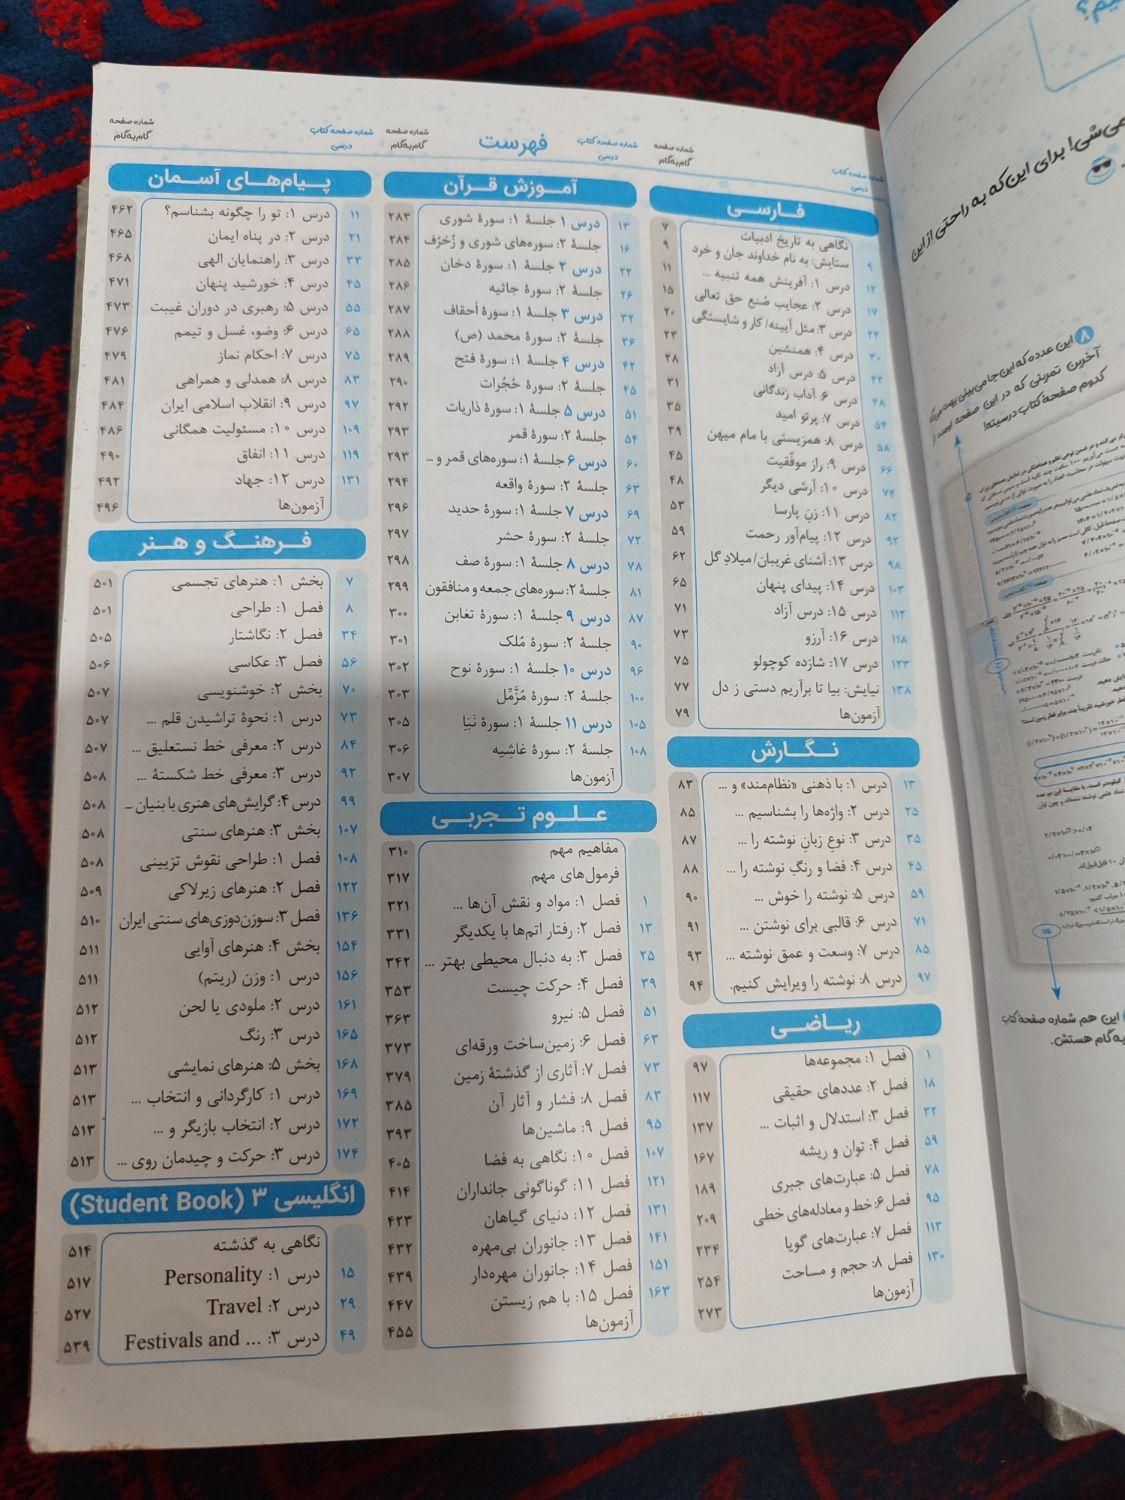 فهرست
شماره صفحه کتاب درسی
شماره صفحه گام‌به‌گام
فارسی
نگاهی به تاریخ ادبیات ۷
۹ ستایش: به نام خداوند جان و خرد ۹
۱۲ درس ۱: آفرینش همه تنبیه ... ۱۱
۱۷ درس ۲: عجایب صُنع حق تعالی ۱۵
۲۴ درس ۳: مثل آیینه/ کار و شایستگی ۲۰
۳۰ درس ۴: همنشین ۲۳
۴۲ درس ۵: درس آزاد ۲۸
۴۸ درس ۶: آداب زندگانی ۳۱
۵۴ درس ۷: پرتو امید ۳۵
۵۸ درس ۸: همزیستی با مام میهن ۳۹
۶۶ درس ۹: رازِ موفّقیت ۴۵
۷۴ درس ۱۰: آرشی دیگر ۴۸
۸۲ درس ۱۱: زنِ پارسا ۵۳
۹۲ درس ۱۲: پیام‌آور رحمت ۵۹
۹۸ درس ۱۳: آشنای غریبان/ میلادِ گل ۶۲
۱۰۳ درس ۱۴: پیدای پنهان ۶۵
۱۱۲ درس ۱۵: درس آزاد ۷۱
۱۱۸ درس ۱۶: آرزو ۷۳
۱۳۳ درس ۱۷: شازده کوچولو ۷۵
۱۳۸ نیایش: بیا تا برآریم دستی ز دل ۷۷
آزمون‌ها ۷۹
نگارش
۱۳ درس ۱: با ذهنی «نظام‌مند» و ... ۸۳
۲۵ درس ۲: واژه‌ها را بشناسیم ... ۸۵
۳۵ درس ۳: نوعِ زبانِ نوشته را ... ۸۷
۴۵ درس ۴: فضا و رنگِ نوشته را ... ۸۸
۵۹ درس ۵: نوشته را خوش ... ۹۰
۷۱ درس ۶: قالبی برای نوشتن ... ۹۱
۸۵ درس ۷: وسعت و عمق نوشته ... ۹۳
۹۷ درس ۸: نوشته را ویرایش کنیم. ۹۴
ریاضی
۱ فصل ۱: مجموعه‌ها ۹۷
۱۸ فصل ۲: عددهای حقیقی ۱۱۷
۳۲ فصل ۳: استدلال و اثبات ... ۱۳۷
۵۹ فصل ۴: توان و ریشه ۱۶۷
۷۸ فصل ۵: عبارت‌های جبری ۱۸۹
۹۵ فصل ۶: خط و معادله‌های خطی ۲۰۹
۱۱۳ فصل ۷: عبارت‌های گویا ۲۳۴
۱۳۰ فصل ۸: حجم و مساحت ۲۵۴
آزمون‌ها ۲۷۳
شماره صفحه کتاب درسی
شماره صفحه گام‌به‌گام
آموزش قرآن
۱۳ درس ۱ جلسهٔ ۱: سورهٔ شوری ۲۸۳
۱۶ جلسهٔ ۲: سوره‌های شوری و زُخرُف ۲۸۴
۲۲ درس ۲ جلسهٔ ۱: سورهٔ دخان ۲۸۵
۲۶ جلسهٔ ۲: سورهٔ جاثیه ۲۸۶
۳۲ درس ۳ جلسهٔ ۱: سورهٔ أحقاف ۲۸۷
۳۶ جلسهٔ ۲: سورهٔ محمد (ص) ۲۸۸
۴۲ درس ۴ جلسهٔ ۱: سورهٔ فتح ۲۸۹
۴۵ جلسهٔ ۲: سورهٔ حُجُرات ۲۹۰
۵۱ درس ۵ جلسهٔ ۱: سورهٔ ذاریات ۲۹۲
۵۴ جلسهٔ ۲: سورهٔ قمر ۲۹۳
۶۰ درس ۶ جلسهٔ ۱: سوره‌های قمر و ... ۲۹۳
۶۳ جلسهٔ ۲: سورهٔ واقعه ۲۹۴
۶۹ درس ۷ جلسهٔ ۱: سورهٔ حدید ۲۹۶
۷۲ جلسهٔ ۲: سورهٔ حشر ۲۹۷
۷۸ درس ۸ جلسهٔ ۱: سورهٔ صف ۲۹۸
۸۱ جلسهٔ ۲: سوره‌های جمعه و منافقون ۲۹۹
۸۷ درس ۹ جلسهٔ ۱: سورهٔ تغابن ۳۰۰
۹۰ جلسهٔ ۲: سورهٔ مُلک ۳۰۱
۹۶ درس ۱۰ جلسهٔ ۱: سورهٔ نوح ۳۰۲
۱۰۰ جلسهٔ ۲: سورهٔ مُزَّمِّل ۳۰۳
۱۰۵ درس ۱۱ جلسهٔ ۱: سورهٔ نَبَأ ۳۰۵
۱۰۸ جلسهٔ ۲: سورهٔ غاشیه ۳۰۶
آزمون‌ها ۳۰۷
علوم تجربی
مفاهیم مهم ۳۱۰
فرمول‌های مهم ۳۱۷
۱ فصل ۱: مواد و نقش آن‌ها ... ۳۲۱
۱۳ فصل ۲: رفتار اتم‌ها با یکدیگر ۳۳۱
۲۵ فصل ۳: به دنبال محیطی بهتر ... ۳۴۲
۳۹ فصل ۴: حرکت چیست ۳۵۳
۵۱ فصل ۵: نیرو ۳۶۳
۶۳ فصل ۶: زمین‌ساخت ورقه‌ای ۳۷۳
۷۳ فصل ۷: آثاری از گذشتهٔ زمین ۳۷۹
۸۳ فصل ۸: فشار و آثار آن ۳۸۵
۹۵ فصل ۹: ماشین‌ها ۳۹۳
۱۰۷ فصل ۱۰: نگاهی به فضا ۴۰۵
۱۲۱ فصل ۱۱: گوناگونی جانداران ۴۱۴
۱۳۱ فصل ۱۲: دنیای گیاهان ۴۲۳
۱۴۱ فصل ۱۳: جانوران بی‌مهره ۴۳۲
۱۵۱ فصل ۱۴: جانوران مهره‌دار ۴۳۹
۱۶۳ فصل ۱۵: با هم زیستن ۴۴۷
آزمون‌ها ۴۵۵
شماره صفحه کتاب درسی
شماره صفحه گام‌به‌گام
پیام‌های آسمان
۱۱ درس ۱: تو را چگونه بشناسم؟ ۴۶۲
۲۱ درس ۲: در پناه ایمان ۴۶۵
۳۳ درس ۳: راهنمایان الهی ۴۶۸
۴۵ درس ۴: خورشید پنهان ۴۷۱
۵۵ درس ۵: رهبری در دوران غیبت ۴۷۳
۶۵ درس ۶: وضو، غسل و تیمم ۴۷۶
۷۵ درس ۷: احکام نماز ۴۷۹
۸۳ درس ۸: همدلی و همراهی ۴۸۱
۹۷ درس ۹: انقلاب اسلامی ایران ۴۸۴
۱۰۹ درس ۱۰: مسئولیت همگانی ۴۸۶
۱۱۹ درس ۱۱: انفاق ۴۹۰
۱۳۱ درس ۱۲: جهاد ۴۹۲
آزمون‌ها ۴۹۶
فرهنگ و هنر
۷ بخش ۱: هنرهای تجسمی ۵۰۱
۸ فصل ۱: طراحی ۵۰۱
۳۴ فصل ۲: نگاشتار ۵۰۵
۵۶ فصل ۳: عکاسی ۵۰۶
۷۰ بخش ۲: خوشنویسی ۵۰۷
۷۳ درس ۱: نحوهٔ تراشیدن قلم ... ۵۰۷
۸۴ درس ۲: معرفی خط نستعلیق ... ۵۰۷
۹۲ درس ۳: معرفی خط شکستهٔ ... ۵۰۸
۹۹ درس ۴: گرایش‌های هنری با بنیان ... ۵۰۸
۱۰۷ بخش ۳: هنرهای سنتی ۵۰۸
۱۰۸ فصل ۱: طراحی نقوش تزیینی ۵۰۸
۱۲۲ فصل ۲: هنرهای زیرلاکی ۵۰۹
۱۳۶ فصل ۳: سوزن‌دوزی‌های سنتی ایران ۵۱۰
۱۵۴ بخش ۴: هنرهای آوایی ۵۱۱
۱۵۶ درس ۱: وزن (ریتم) ۵۱۱
۱۶۱ درس ۲: ملودی یا لحن ۵۱۲
۱۶۵ درس ۳: رنگ ۵۱۲
۱۶۸ بخش ۵: هنرهای نمایشی ۵۱۳
۱۶۹ درس ۱: کارگردانی و انتخاب ... ۵۱۳
۱۷۲ درس ۲: انتخاب بازیگر و ... ۵۱۳
۱۷۴ درس ۳: حرکت و چیدمان روی ... ۵۱۳
انگلیسی ۳ (Student Book)
نگاهی به گذشته ۵۱۴
۱۵ درس ۱: Personality ۵۱۷
۲۹ درس ۲: Travel ۵۲۷
۴۹ درس ۳: Festivals and ... ۵۳۹
می‌شی! برای این‌که به راحتی از این
۸ این عدده که این‌جا می‌بینی بهت می‌گه
آخرین تمرینی که در این صفحه اومده از
کدوم صفحهٔ کتاب درسیته!
این هم شماره صفحهٔ کتاب
به‌گام هستش.